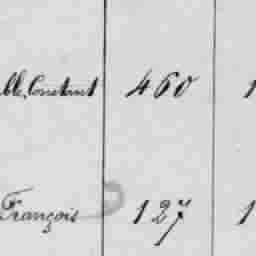 ble, Constant 460 1
François 127 1